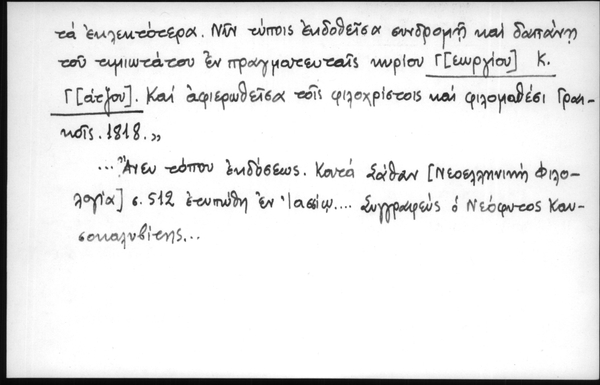 τά ἐκλεκτότερα. Νῦν τύποις ἐκδοθεῖσα συνδρομῇ καί δαπάνῃ
τοῦ τιμιωτάτου ἐν πραγματευταῖς κυρίου Γ[εωργίου] Κ.
Γ[άτζου]. Καί ἀφιερωθεῖσα τοῖς φιλοχρίστοις καί φιλομαθέσι Γραι-
κοῖς. 1818.»
...Ἄνευ τόπου ἐκδόσεως. Κατά Σάθαν [Νεοελληνική Φιλο-
λογία] σ. 512 ἐτυπώθη ἐν Ἰασίῳ.... Συγγραφεύς ὁ Νεόφυτος Καυ-
σοκαλυβίτης...